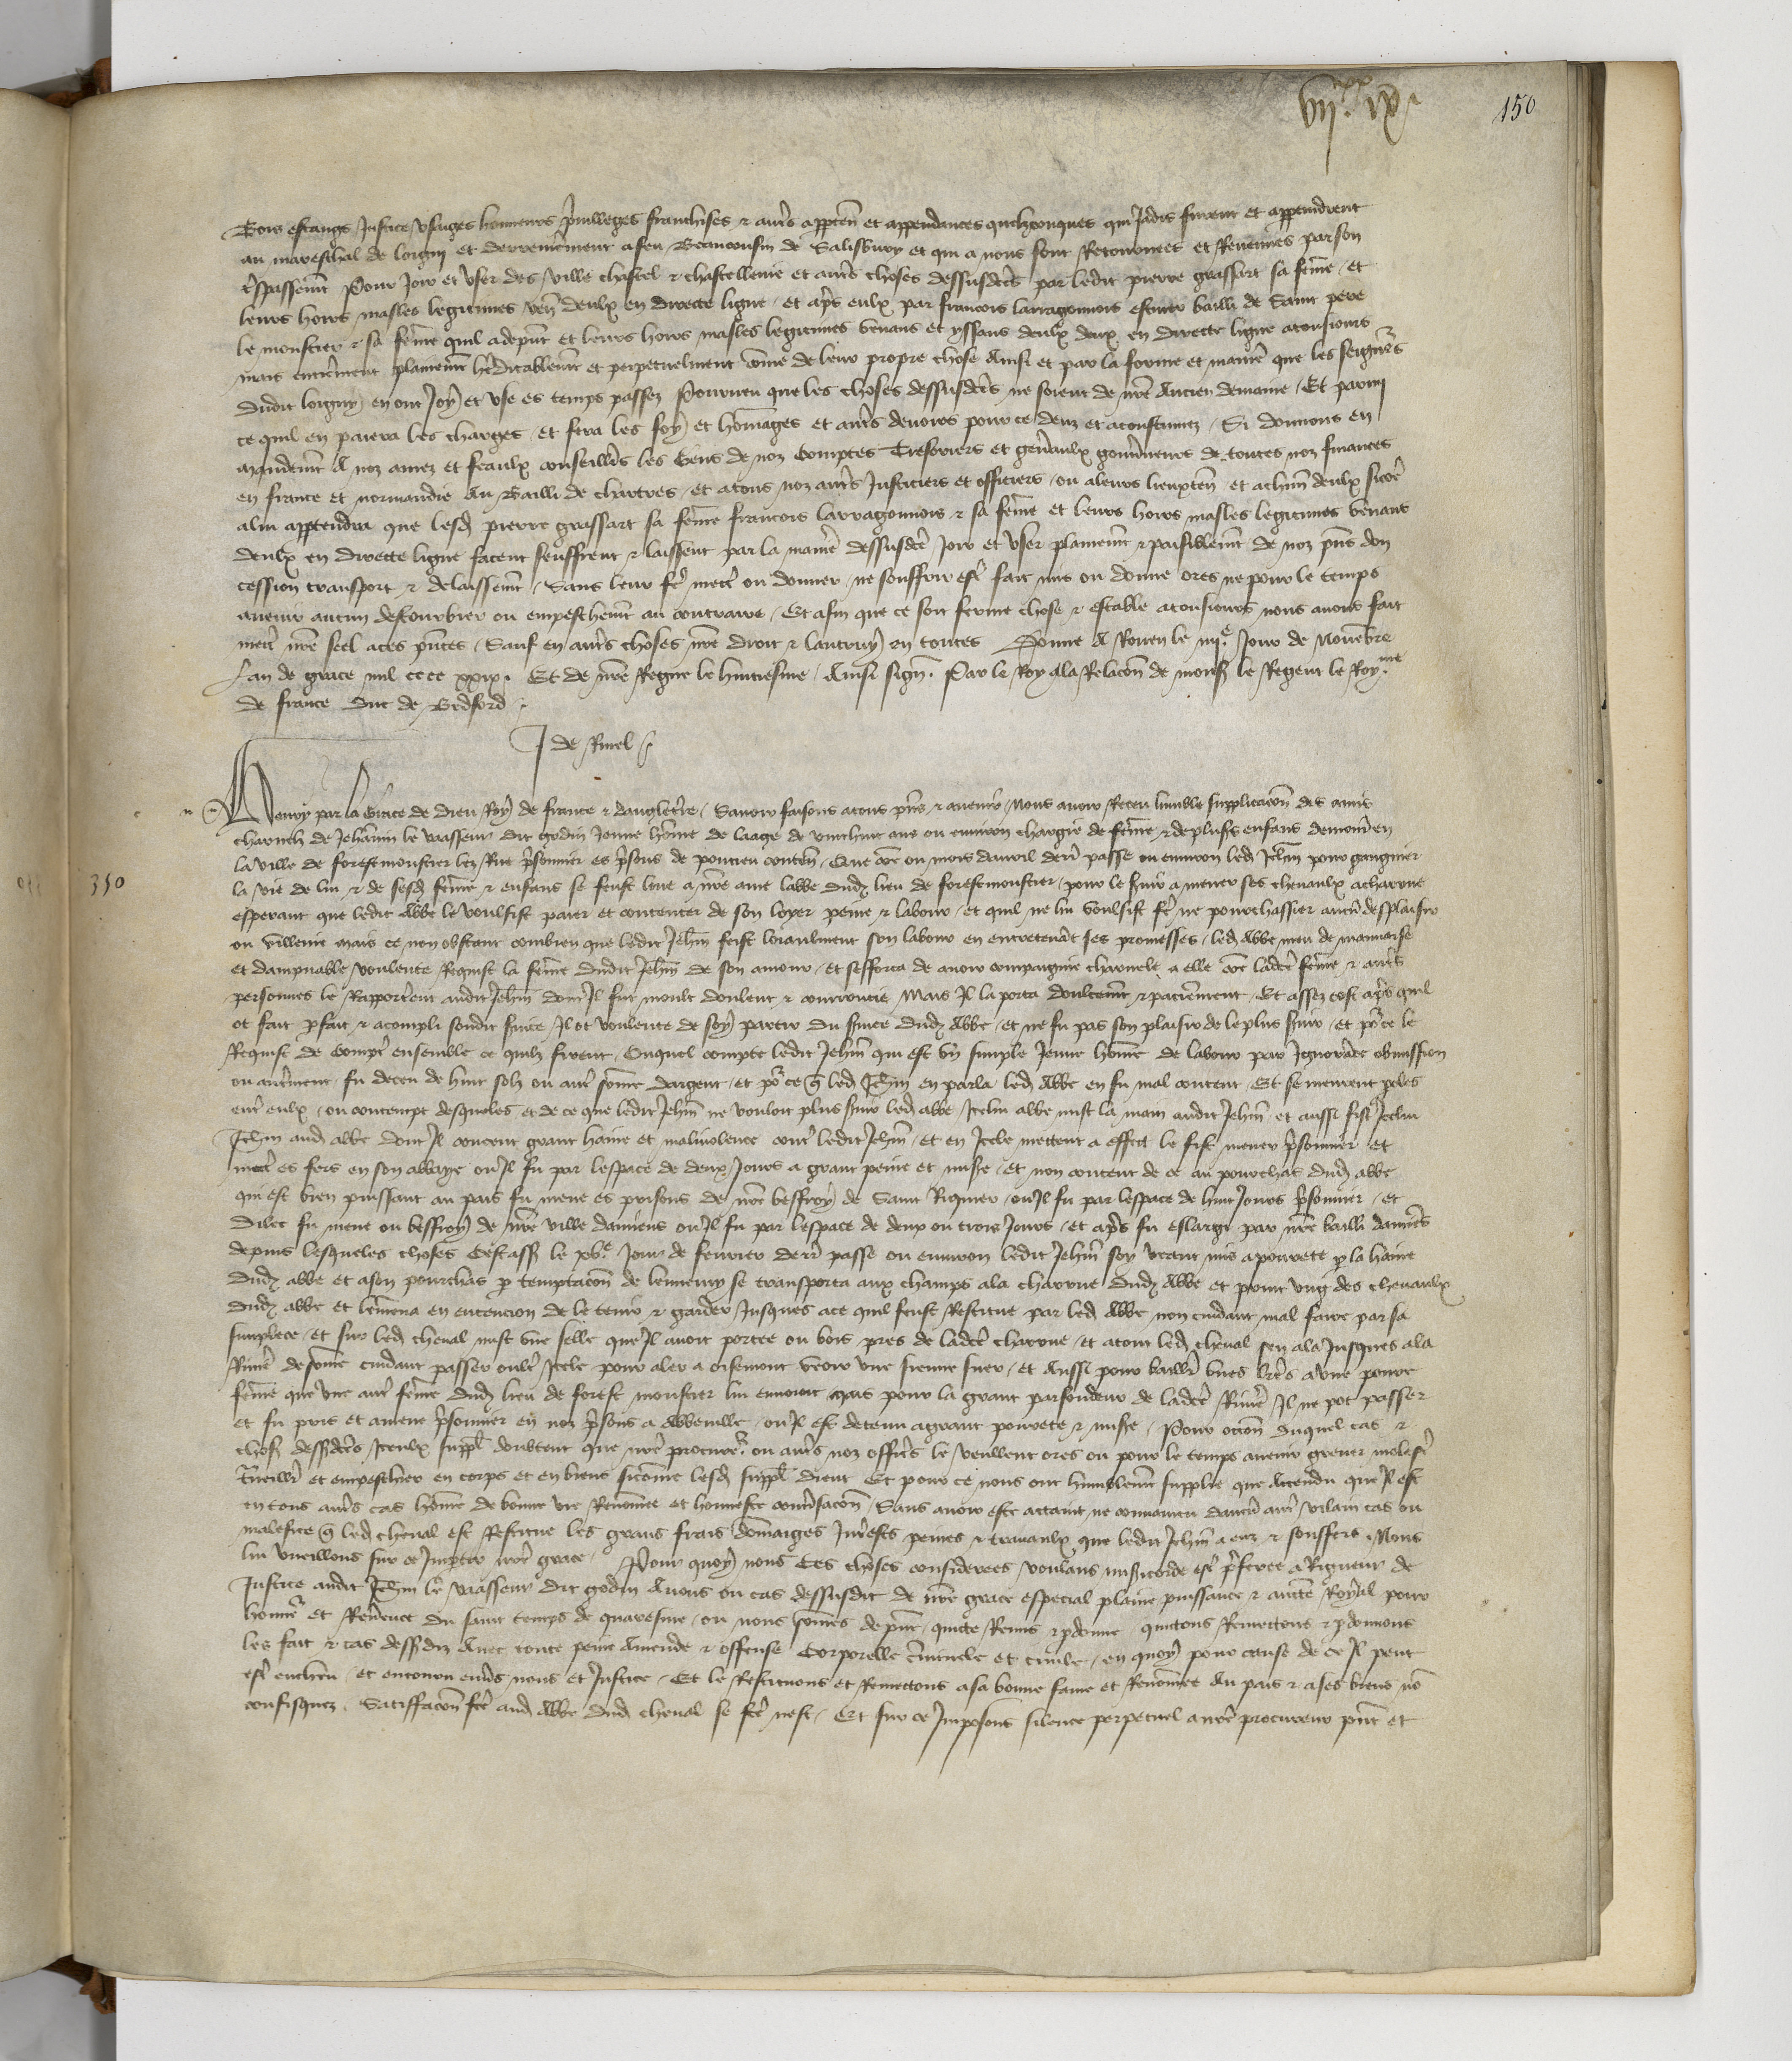 vii.xx ix
150
Bois estangs Justice usaiges honneurs privilleges franchises & autres apparten et appendances quelzconques qui Jadis furent et appendirent
au mareschal de loigny et derrenierement a feu Beaucousin de Salisbury et qui a nous sont Retournees et Revenues par son
trespassemt Pour Joir et user des ville chastel & chastellenie et autres choses dessusdctes par ledit pierre grassart sa feme et
leurs hoirs masles legitimes ven deulx en directe ligne et apres eulx par francois larragonnois escuier bailli de Saint pere
le monstier & sa feme quil a depnt et leurs hoirs masles legitimes venans et yssans deulx deux en directe ligne a tousiours
mais entierement plainemt hereditablemt et perpetuelment come de leur propre chose Ainsi et par la forme et maniere que les seigneurs
dudit loigny en ont Joy et use es temps passez Pourveu que les choses dessusdctes ne soient de nre Ancien demaine Et parmi
ce quil en paiera les charges et fera les foy et homages et autres devoirs pour ce deuz et acoustumez Si donnons en
mandemt A noz amez et feaulx conseilliers les Gens de noz Comptes Tresoriers et generaulx gouverneurs de toutes noz finances
en france et normandie Au Bailli de chartres et a tous noz autres Justiciers et officiers ou a leurs lieuxten et a chun deulx sicome
a lui appartendra que lesd pierre grassart sa feme francois larragonnois & sa feme et leurs hoirs masles legitimes venans
deulx en directe ligne facent seuffrent & laissent par la maniere dessusdcte Joir et user plainemt & paisiblemt de noz pns don
cession transport & delaissemt Sans leur fe mectre ou donner ne souffrir estre fait mis ou donne ores ne pour le temps
avenir aucun destourbier ou empeschemt au contraire Et afin que ce soit ferme chose & estable a tousiours nous avons fait
mectre nre seel a ces pntes Sauf en autres choses nre droit & lautruy en toutes Donne A Rouen le iiiie Jour de Novembre
Lan de grace mil cccc xxix. Et de nre Regne le huitiesme Ainsi sign. Par le Roy a la Relacon de mons le Regent le Royme
de france duc de Bedford
J de Rinel
350
Henry par la Grace de Dieu Roy de france & dangleterre Savoir faisons a tous pns & avenir Nous avoir Receu humble supplicacon des amis
charnelz de Jehannin le vasseur dit godin Jeune home de laage de vinthuit ans ou environ chargie de feme & de pluss enfans demour en
la ville de forestmonstier lez Rue prisonnier es prisons de pontieu conten Que come ou mois davril derr passe ou environ led Jehan pour gaignier
la vie de lui & de sesd feme & enfans se feust loue a nre ame labbe dud lieu de forestmonstier pour le servir a mener ses chevaulx a charrue
esperant que ledit Abbe le voulsist paier et contenter de son loyer peine & labour et quil ne lui voulsist fe ne pourchassier aucun desplaisir
ou villenie mais ce non obstant combien que ledit Jehan feist loiaulment son labour en entretenat ses promesses led Abbe meu de mauvaise
et dampnable voulente Requist la feme dudit Jehan de son amour et sefforca de avoir compaignie charnele a elle come ladcte feme & autres
personnes le Rapporterent audit Jehan dont Il fut moult doulent & courroucie Mais Il la porta doulcemt & paciemment Et assez tost apres quil
ot fait parfait & acompli sondit service Il ot voulente de soy partir du service dud Abbe et ne fu pas son plaisir de le plus servir et pour ce le
Requist de Compter ensemble ce quilz firent Ouquel compte ledit Jehan qui est un simple Jeune home de labour par Ignorace obmission
ou autrement fu deceu de huit solz ou autre some dargent et pour ce que led Jehan en parla led Abbe en fu mal content Et se meurent paroles
entre eulx ou contempt desqueles et de ce que ledit Jehan ne vouloit plus servir led abbe Icelui abbe mist la main audit Jehan et aussi fist Icelui
Jehan aud abbe dont Il conceut grant haine et malivolence contre ledit Jehan et en Icele mettent a effect le fist mener prisonnier et
mectre es fers en son abbaye ou Il fu par lespace de deux Jours a grant peine et misere et non content de ce au pourchas dud abbe
qui est bien puissant au pais fu mene es prisons de nre beffroy de Saint Riquier ou Il fu par lespace de huit Jours prisonnier et
dilec fu mene ou beffroy de nre ville damiens ou Il fu par lespace de deux ou trois Jours et apres fu eslargi par nre bailli damiens
depuis lesqueles choses Cestass le xve Jour de fevrier derr passe ou environ ledit Jehan soy veant mis a povrete par la haine
dud abbe et a son pourchas par temptacon de lennemy se transporta aux champs a la charrue dud Abbe et print ung des chevaulx
dud abbe et lemmena en entencion de le tenir & garder Jusques a ce quil feust Restitue par led Abbe non cuidant mal faire par sa
simplece et sur led cheval mist une selle que Il avoit portee ou bois pres de ladcte charrue et a tout led cheval sen ala Jusques a la
Riviere de some cuidant passer oultre Icele pour aler a oisemont veoir une sienne suer et Aussi pour baillier unes lres a une povre
feme que une autre feme dud lieu de forest monstier lui envoioit mais pour la grant parfondeur de ladcte Riviere Il ne pot passer
et fu pris et amene prisonnier en noz prisons a Abbeville ou Il est detenu a grant povrete & misere Pour occon duquel cas &
choses dessusdctes Iceulx suppl doubtent que nre procureur ou autres noz officrs le veullent ores ou pour le temps avenir grever molester
traveillier et empeschier en corps et en biens sicome lesd suppl dient Et pour ce nous ont humblemt supplie que Attendu que Il est
en tous autres cas home de bonne vie Renomee et honneste conversacon Sans avoir este actaint ne convaincu daucun autre vilain cas ou
malefice que led cheval est Restitue les grans frais domaiges Interestz peines & travaulx que ledit Jehan a euz & souffers Nous
lui vueillons sur ce Impartir nre grace Pour quoy nous Ces choses considerees voulans misericorde estre preferee a Rigueur de
Justice audit Jehan le vasseur dit godin Avons ou cas dessusdit de nre grace especial plaine puissance & aucte Royal pour
honneur et Reverence du saint temps de quaresme ou nous somes de pnt quicte Remis & pardonne quictons Remettons & pardonnons
les fait & cas dessusdiz Avec toute peine Amende & offense Corporelle criminele et civile en quoy pour cause de ce Il peut
estre encheu et encouru envers nous et Justice Et le Restituons et Remettons a sa bonne fame et Renomee Au pais & a ses biens no
confisquez Satiffacon fcte aud Abbe dud cheval se fcte nest Et sur ce Imposons silence perpetuel a nre procureur pnt et